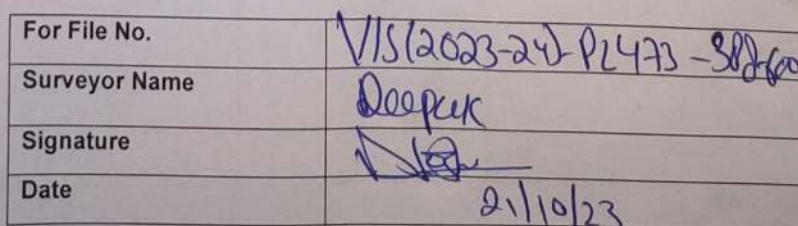 For File No. VIS(2023-24)-PL473-
Surveyor Name Deepak
Signature
Date 21/10/23